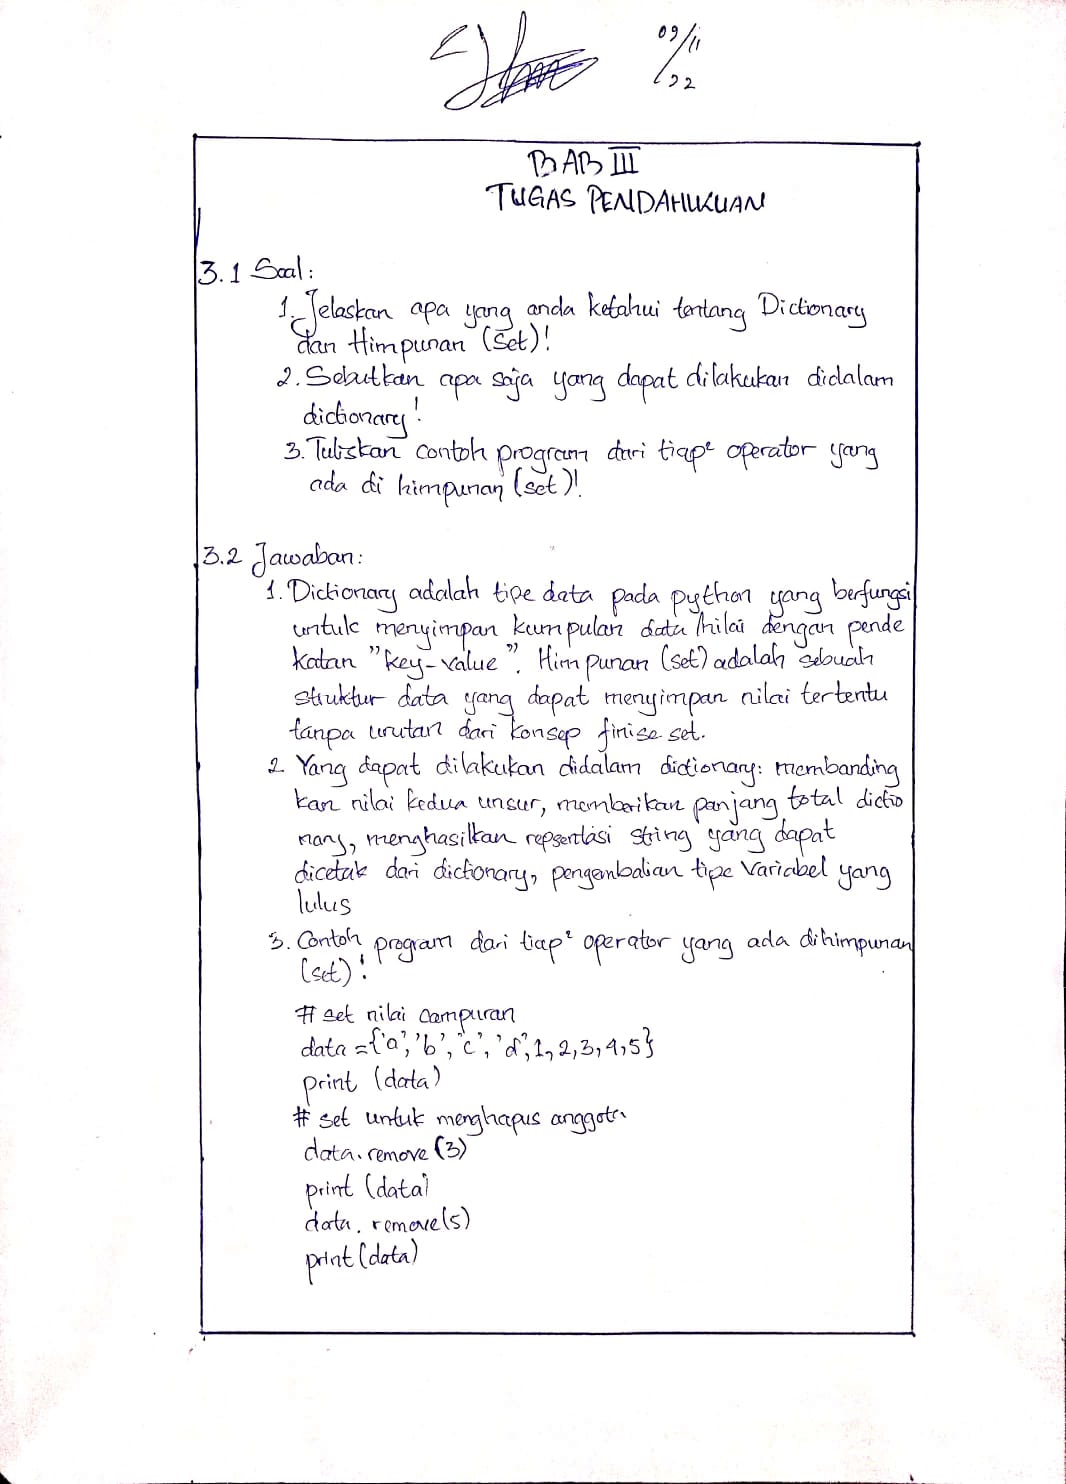 09/11
/22
BAB III
TUGAS PENDAHUKUAN
3.1 Soal:
1. Jelaskan apa yang anda ketahui tentang Dictionary
dan Himpunan (Set)!
2. Sebutkan apa saja yang dapat dilakukan didalam
dictionary!
3. Tuliskan contoh program dari tiap² operator yang
ada di himpunan (set)!
3.2 Jawaban:
1. Dictionary adalah tipe data pada python yang berfungsi
untuk menyimpan kumpulan data/nilai dengan pende
katan "key-value". Himpunan (set) adalah sebuah
struktur data yang dapat menyimpan nilai tertentu
tanpa urutan dari konsep finise set.
2. Yang dapat dilakukan didalam dictionary: membanding
kan nilai kedua unsur, memberikan panjang total dictio
nary, menghasilkan repsentasi string yang dapat
dicetak dari dictionary, pengembalian tipe Variabel yang
lulus
3. Contoh program dari tiap² operator yang ada dihimpunan
(set)!
# set nilai campuran
data = {'a', 'b', 'c', 'd', 1, 2, 3, 4, 5}
print (data)
# set untuk menghapus anggota
data.remove (3)
print (data)
data.remove(5)
print (data)